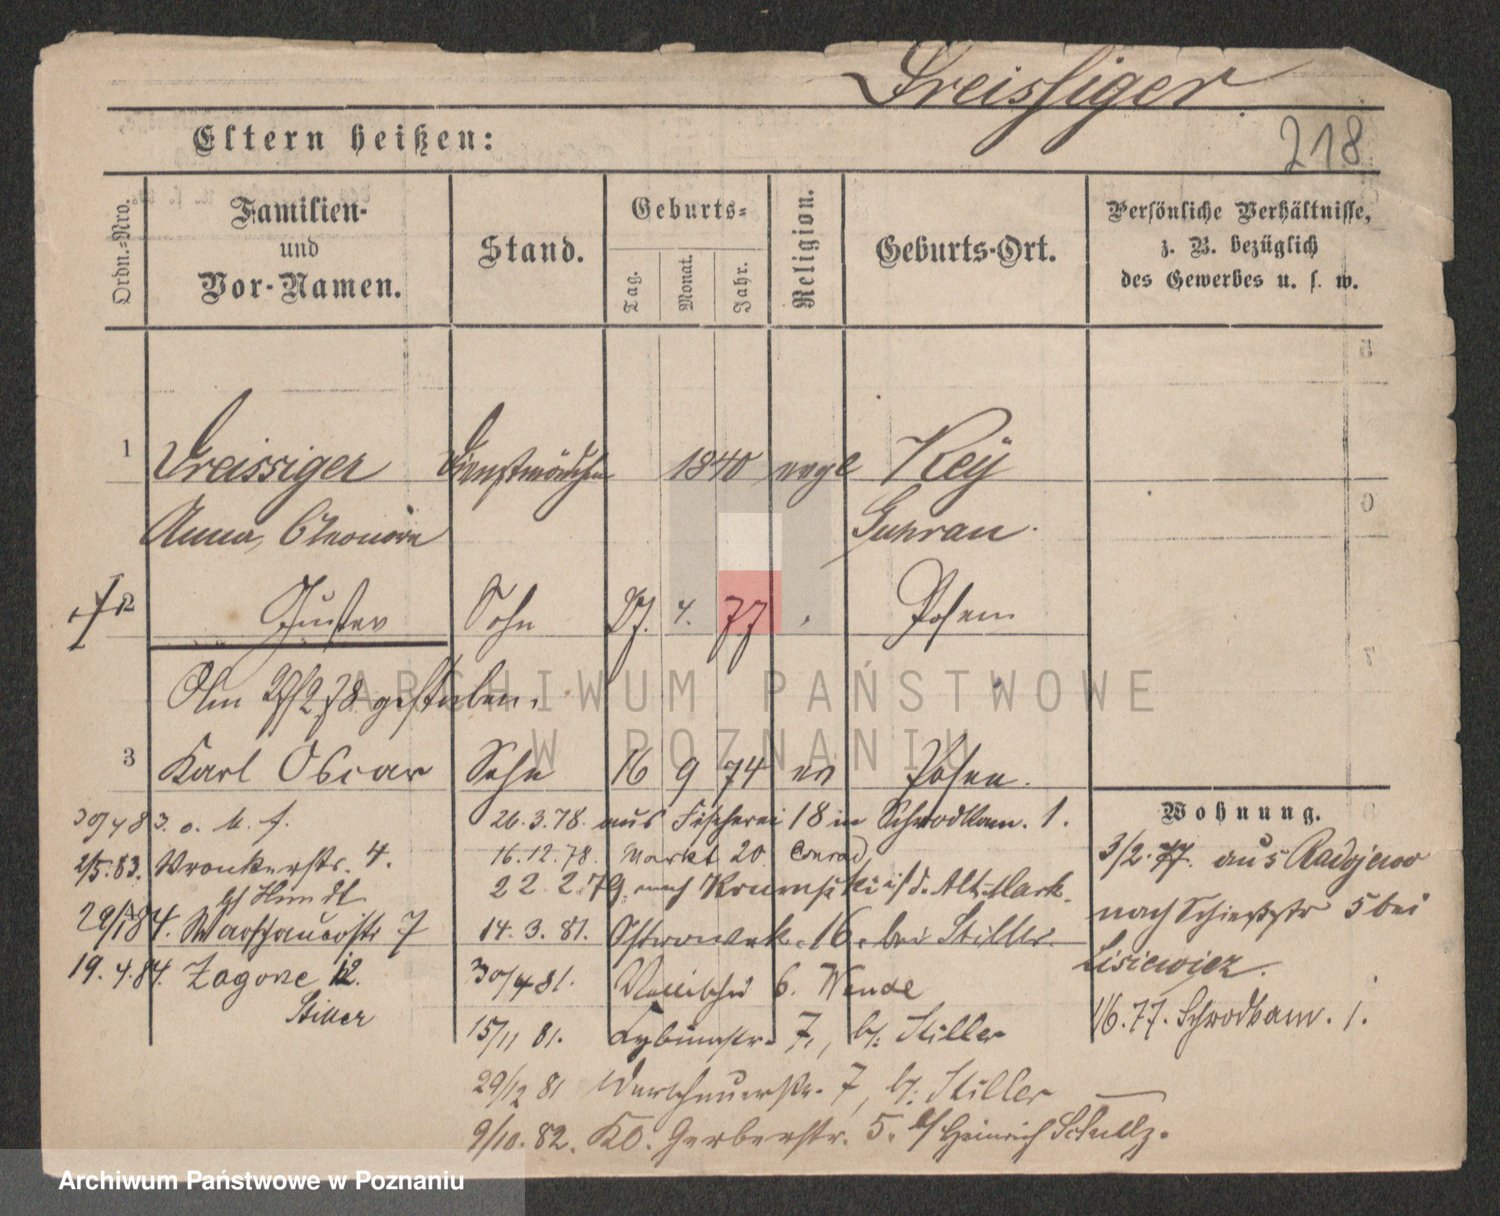 Dreissiger
218
Eltern heißen:
Ordn.-Nro.
Familien- und Vor-Namen.
Stand.
Geburts-
Tag.
Monat.
Jahr.
Religion.
Geburts-Ort.
Persönliche Verhältnisse, z. B. bezüglich des Gewerbes u. s. w.
1 Dreissiger Dienstmädchen 1840 evgl Key
Anna, Eleonora Guhrau.
2 Gustav Sohn 27. 4. 77 Posen
Am 27/2 78 gestorben.
3 Karl Oscar Sohn 16 9 74 ev Posen.
Wohnung.
3/2. 77. aus Radojewo
nach Schießstr 5 bei
Lisiewicz.
1/6. 77. Schrodkam. 1.
26. 3. 78. aus Fischerei 18 in Schrodkam. 1.
16. 12. 78. Markt 20 Conrad
22. 2. 79. nach i/d. Alt. Mark.
14. 3. 81. 16. bei Stiller.
30/4 81. 6. Wende
15/11 81. 7, b/. Stiller
29/12 81 Warschauerstr. 7, b/. Stiller
9/10. 82. Kl. Gerberstr. 5. b/ Heinrich Schulz.
30/4 83. o. U. f.
2/5. 83. Wronkerstr. 4.
b/ Hundt
29/1 84. Warschauerstr 7
19. 4. 84. Zagorze 12.
Stiller
ARCHIWUM PAŃSTWOWE
W POZNANIU
Archiwum Państwowe w Poznaniu